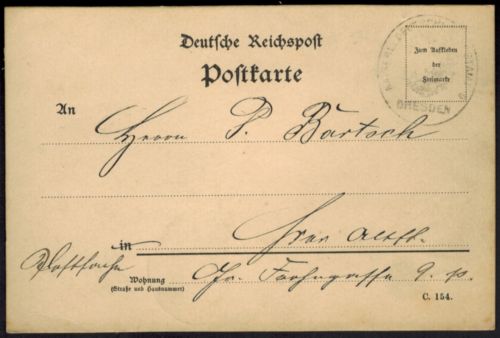 Deutsche Reichspost
Postkarte
Zum Aufkleben
der
Freimarke
DRESDEN
An
Herrn P. Bartsch
in
Hier Altst.
Postsache
Wohnung
(Straße und Hausnummer)
9.
C. 154.